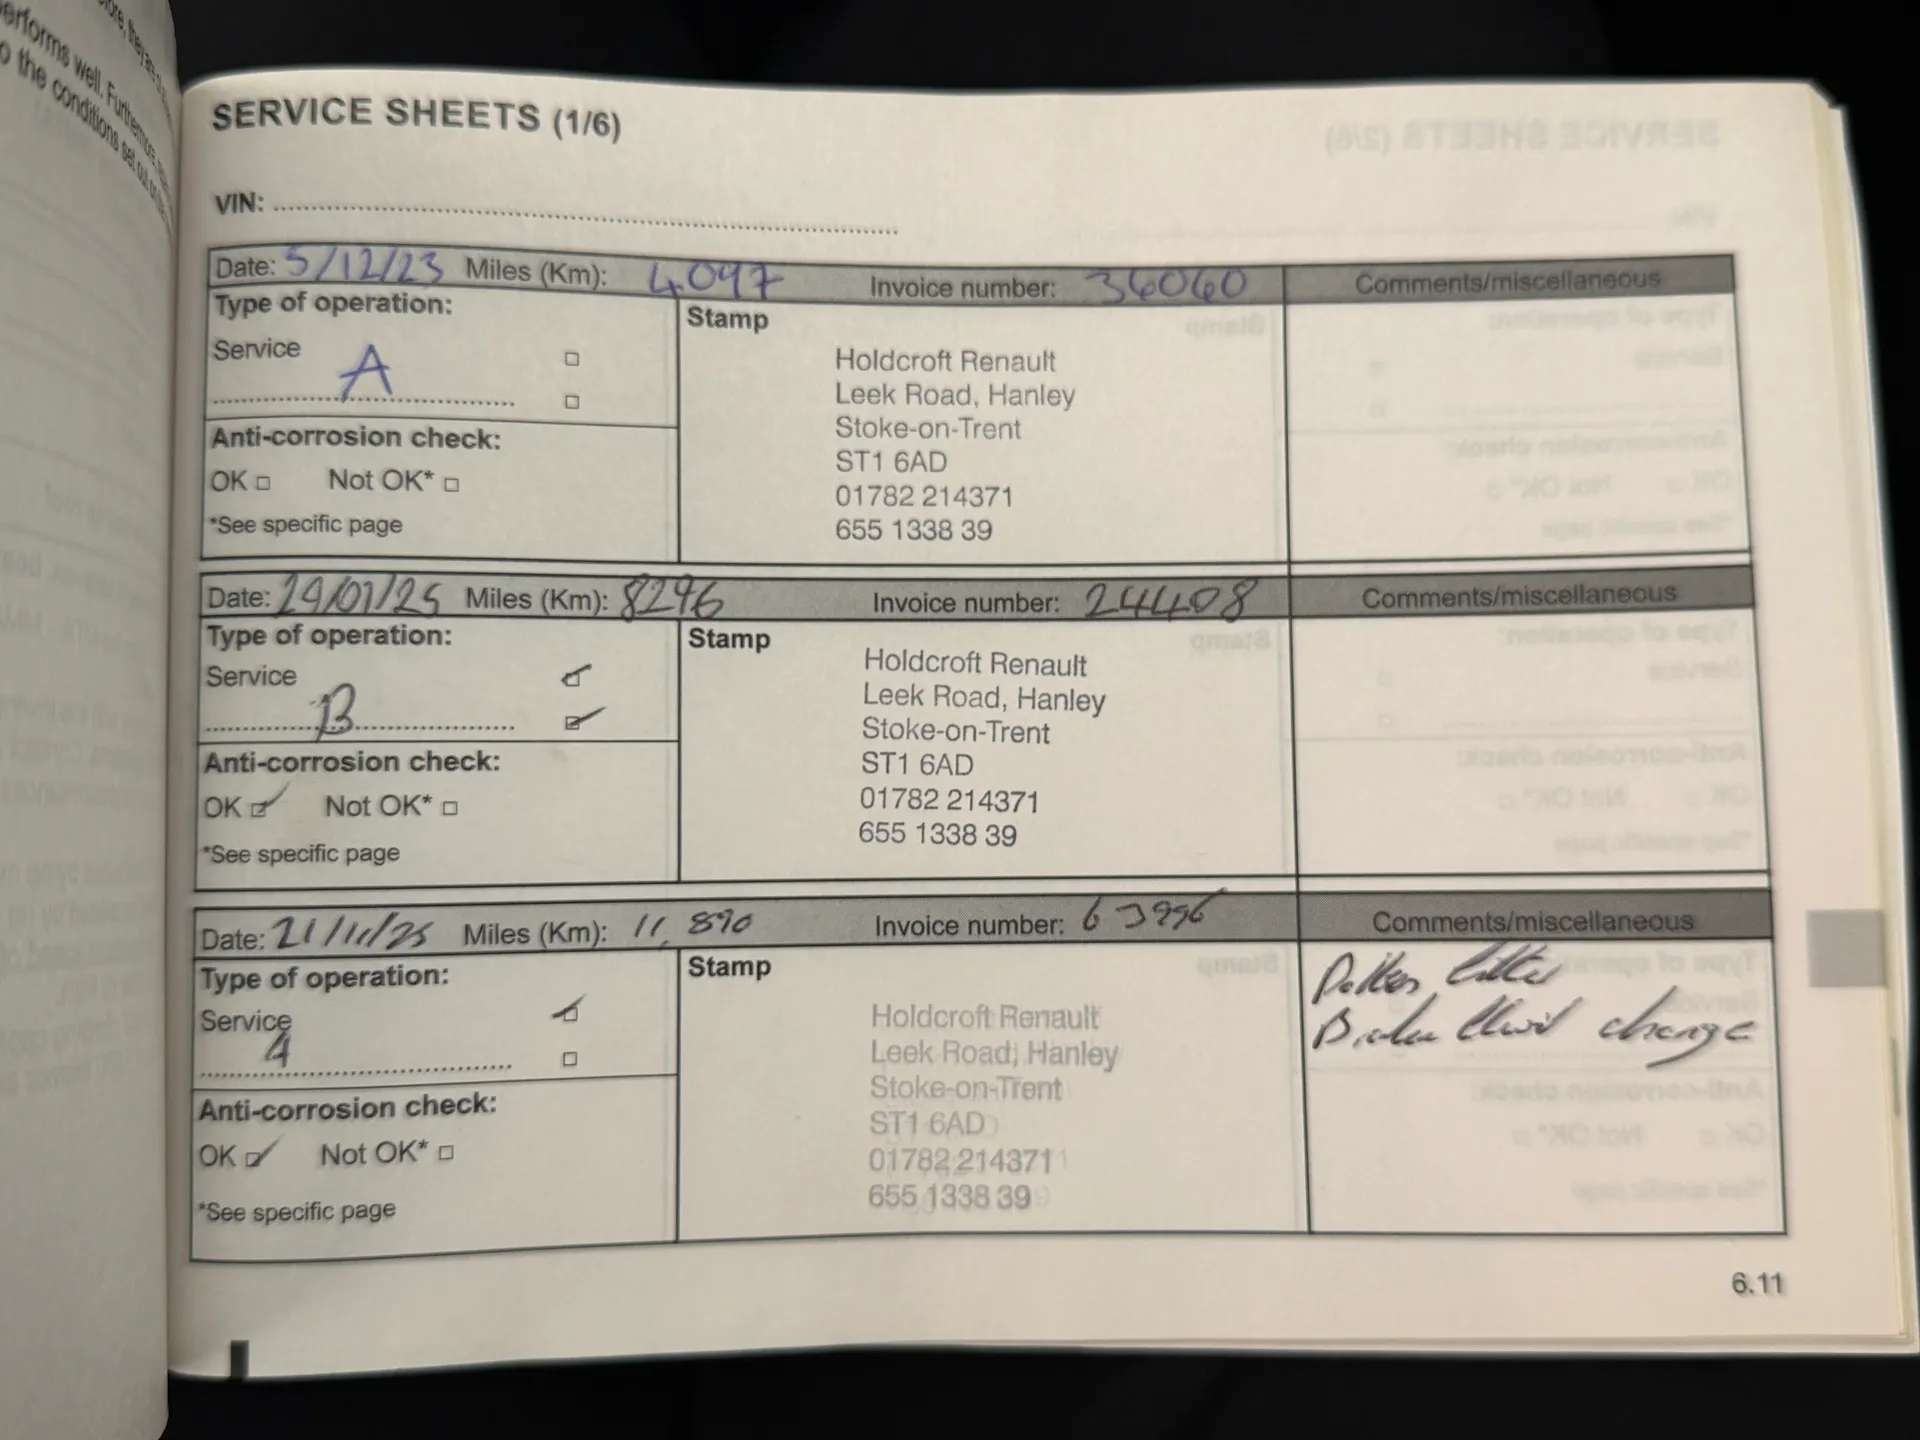 performs well. Furthermore,
to the conditions set out on
SERVICE SHEETS (1/6)
VIN:
Date: 5/12/23 Miles (Km): 4097 Invoice number: 36060 Comments/miscellaneous
Type of operation:
Service
A
Anti-corrosion check:
OK Not OK*
*See specific page
Stamp
Holdcroft Renault
Leek Road, Hanley
Stoke-on-Trent
ST1 6AD
01782 214371
655 1338 39
Date: 29/01/25 Miles (Km): 8296 Invoice number: 24408 Comments/miscellaneous
Type of operation:
Service
B
Anti-corrosion check:
OK Not OK*
*See specific page
Stamp
Holdcroft Renault
Leek Road, Hanley
Stoke-on-Trent
ST1 6AD
01782 214371
655 1338 39
Date: 21/11/25 Miles (Km): 11,890 Invoice number: Comments/miscellaneous
Type of operation:
Service
A
Anti-corrosion check:
OK Not OK*
*See specific page
Stamp
Holdcroft Renault
Leek Road, Hanley
Stoke-on-Trent
ST1 6AD
01782 214371
655 1338 39
Pollen filter
Brake fluid change
6.11